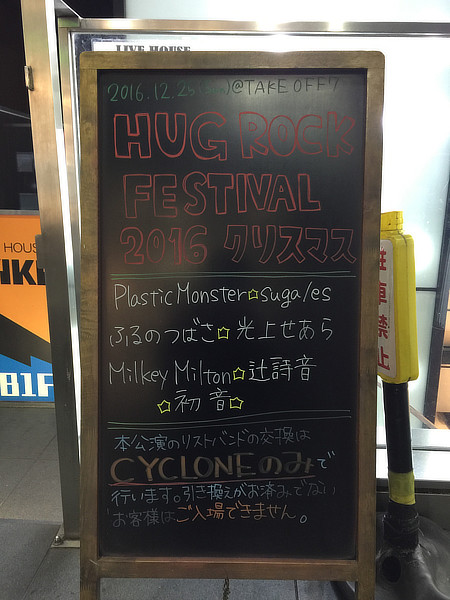 LIVE HOUSE
2016.12.25 @TAKE OFF 7
HUG ROCK
FESTIVAL
2016 クリスマス
Plastic Monster☆suga/es
ふるのつばさ☆光上せあら
Milkey Milton☆辻詩音
☆初音☆
本公演のリストバンドの交換は
CYCLONEのみで
行います。引き換えがお済みでない
お客様はご入場できません。
HOUS
B1F
駐車禁止